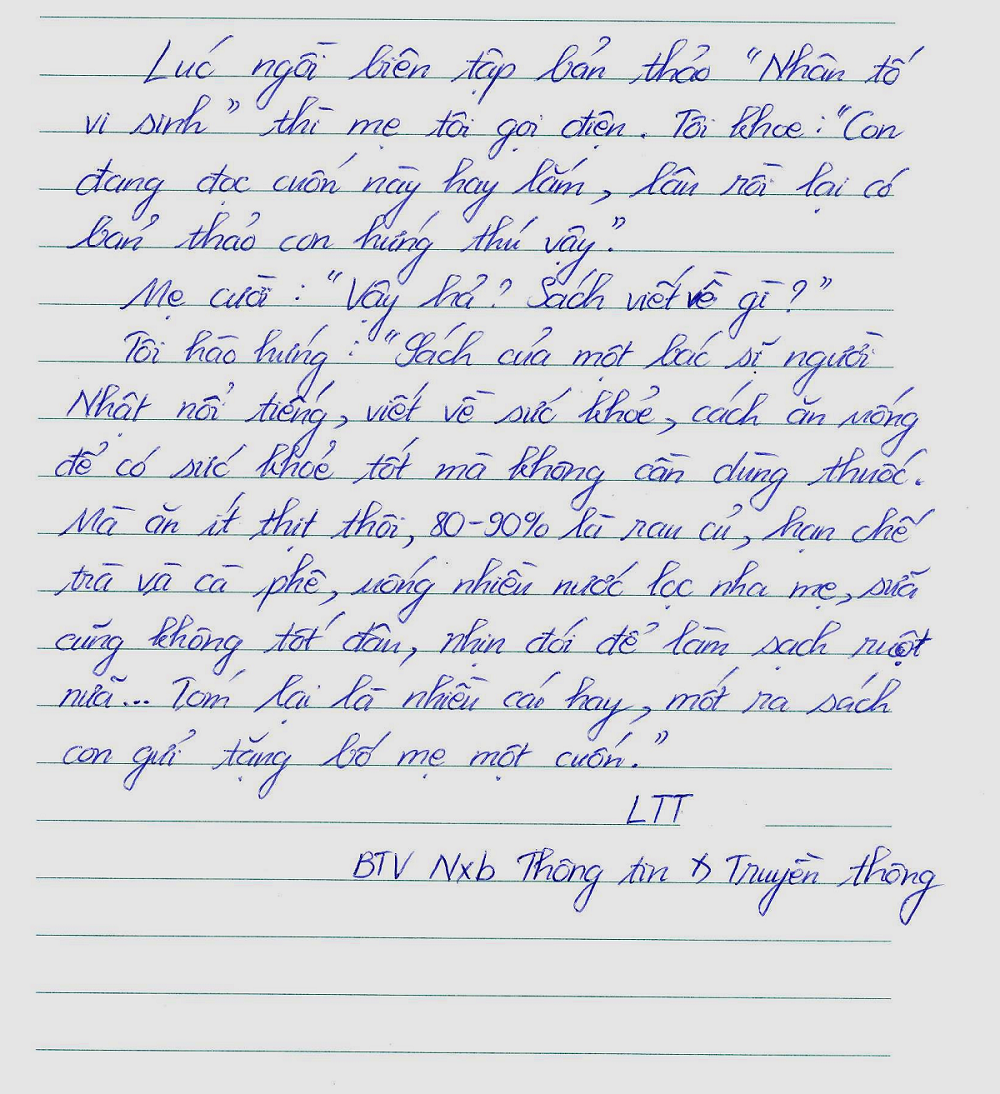 Lúc ngồi biên tập bản thảo "Nhân tố
vi sinh" thì mẹ tôi gọi điện. Tôi khoe: "Con
đang đọc cuốn này hay lắm, lâu rồi lại có
bản thảo con hứng thú vậy".
Mẹ cười: "Vậy hả? Sách viết về gì?"
Tôi hào hứng: "Sách của một bác sĩ người
Nhật nổi tiếng, viết về sức khỏe, cách ăn uống
để có sức khỏe tốt mà không cần dùng thuốc.
Mà ăn ít thịt thôi, 80-90% là rau củ, hạn chế
trà và cà phê, uống nhiều nước lọc nha mẹ, sữa
cũng không tốt đâu, nhịn đói để làm sạch ruột
nữa... Tóm lại là nhiều cái hay, mốt ra sách
con gửi tặng bố mẹ một cuốn."
LTT
BTV Nxb Thông tin & Truyền thông